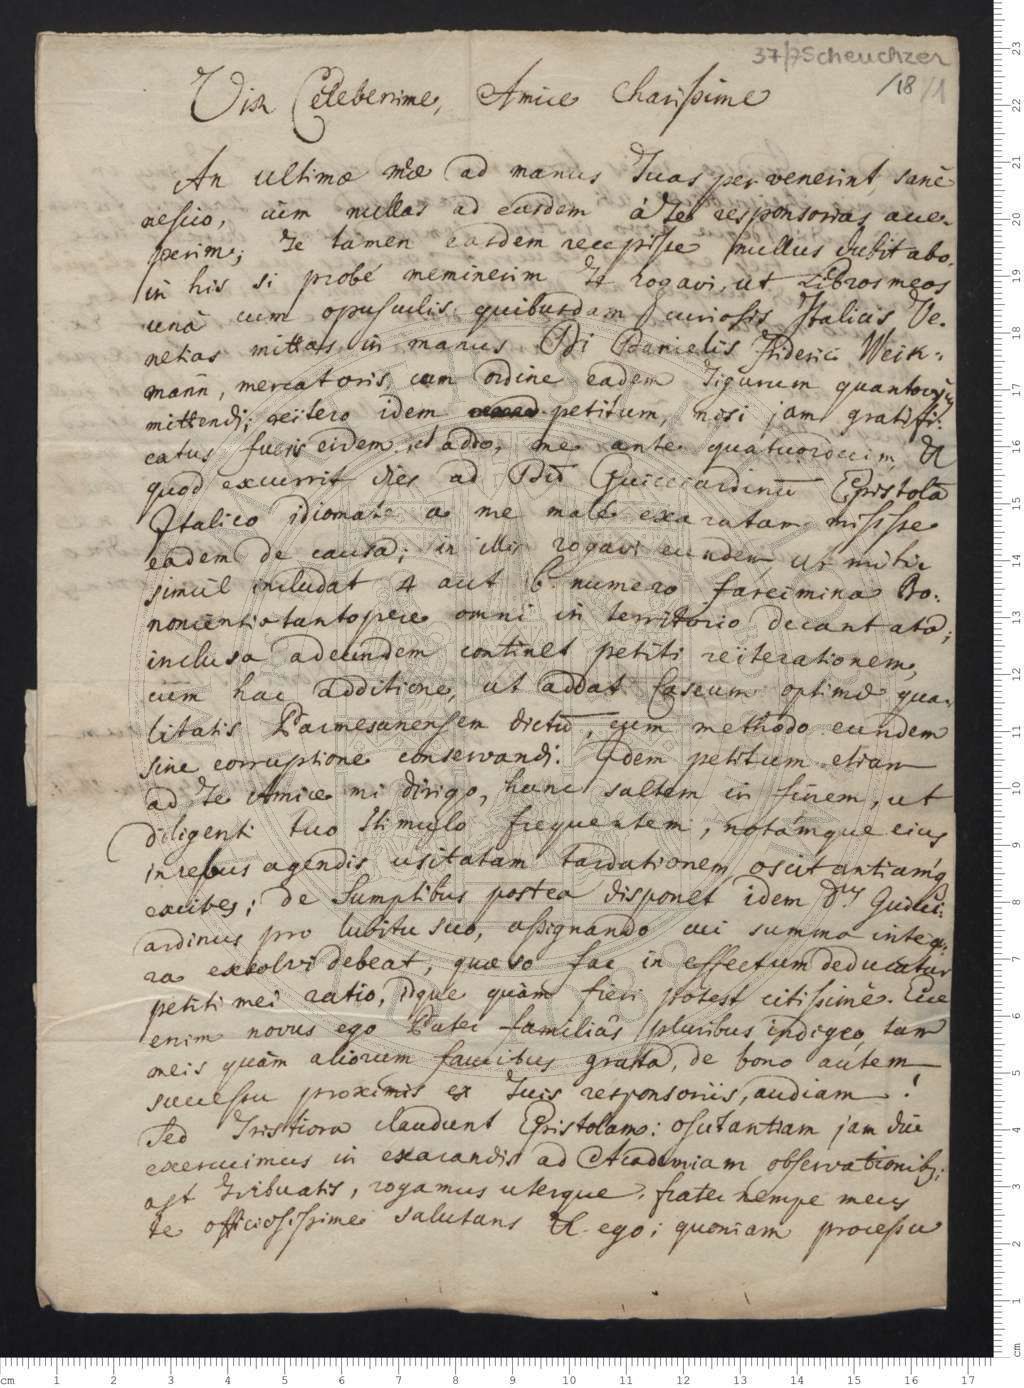 37/7 Scheuchzer
/18/1
Vir Celeberrime, Amice Charissime
An ultimæ meæ ad manus Tuas pervenerint sanè
nescio, cùm nullas ad easdem à Te responsorias acce-
perim; Te tamen easdem recepisse nullus dubitabo.
in his si probè meminerim Te rogavi, ut Libros meos
unà cum opusculis quibusdam curiosis Italicis Ve-
netias mittas in manus Dni Danielis Friderici Weik-
mann, mercatoris, cum ordine eadem Tigurum quantocyùs
mittendi; reïtero idem petitum, nisi jam gratifi-
catus fueris eidem, et addo, me ante quatuordecim, &
quod excurrit dies ad Dnũ Guicciardinũ Epistolã
Italico idiomate a me male exaratam misisse
eadem de causa; in illis rogavi eundem ut mihi
simul includat 4 aut 6 numero farcimina Bo-
noniensia tantopere omni in territorio decantata;
inclusa ad eundem continet petiti reïterationem,
cùm hac additione, ut addat Caseum optimæ qua-
litatis Parmesanensem dictũ, cum methodo eundem
sine corruptione conservandi. Idem petitum etiam
ad Te Amice mi dirigo, hunc saltem in finem, ut
diligenti tuo stimulo frequentem, notamque eius
in rebus agendis usitatam tardationem oscitantiamq
excites; de Sumptibus postea disponet idem Dnus Guicci-
ardinus pro lubitu suo, assignando cui summa integ-
ra exsolvi debeat, quæso fac in effectum deducatur
petiti mei ratio, idque quàm fieri potest citissimè. Ecce
enim novus ego Pater familiâs pluribus indigeo, tam
meis quàm aliorum faucibus gratta, de bono autem
successu proximis ex Tuis responsoriis, audiam!
Sed Tristiora claudunt Epistolam: oscitantiam jam diu
exercuimus in exarandis ad Academiam observationib;
ast tribuatis, rogamus uterque, frater nempe meus
te officiosissime salutans & ego; quoniam processu